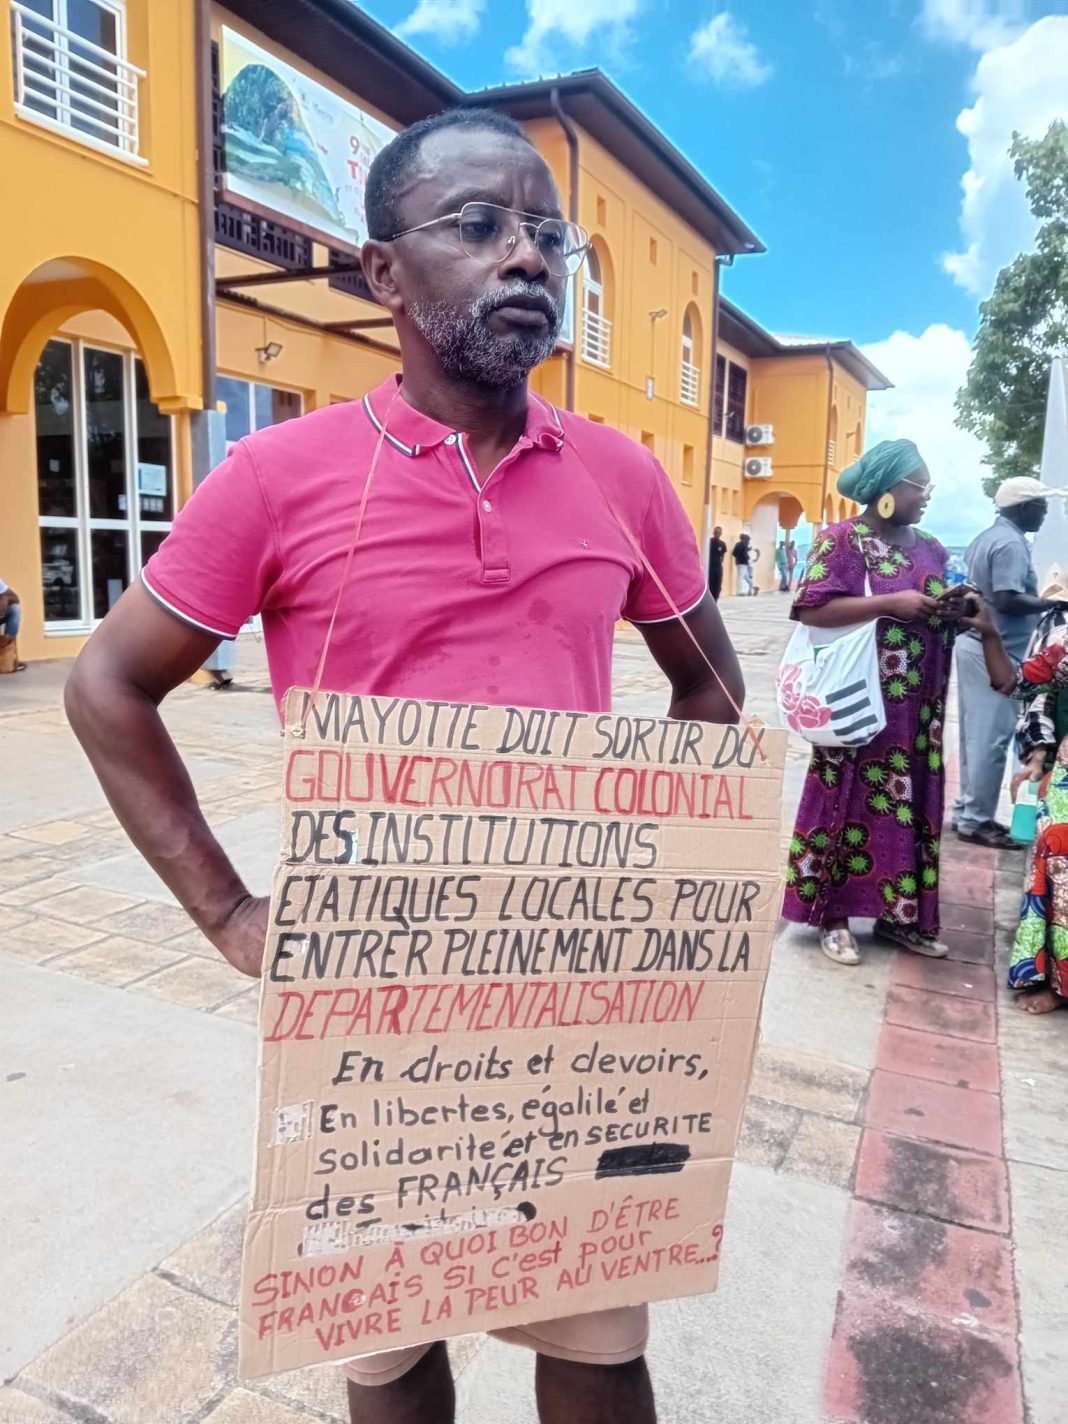 MAYOTTE DOIT SORTIR DU
GOUVERNORAT COLONIAL
DES INSTITUTIONS
ETATIQUES LOCALES POUR
ENTRER PLEINEMENT DANS LA
DEPARTEMENTALISATION
En droits et devoirs,
En libertes, égalilé et
solidarité et en SECURITE
des FRANÇAIS
SINON À QUOI BON D'ÊTRE
FRANCAIS SI C'est pour
VIVRE LA PEUR AU VENTRE...?
9